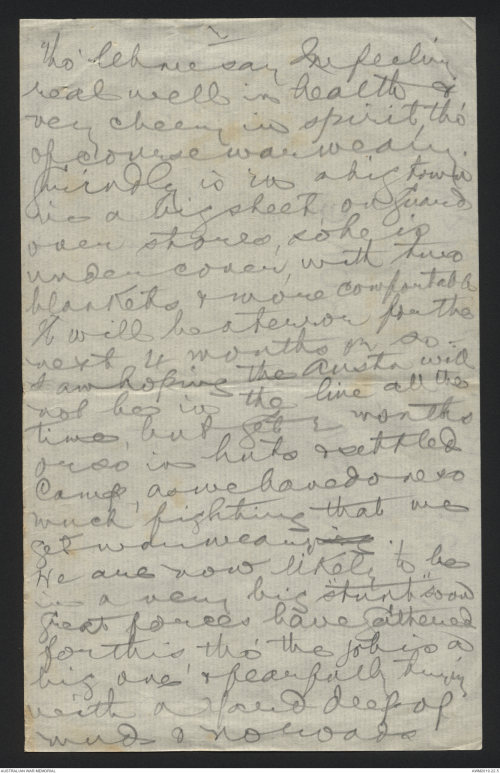 tho' let me say I'm feeling
real well in health &
very cheery in spirit, tho'
of course war weary.
is in a big town
in a big shed, on guard
over stores, so he is
under cover, with two
blankets, & more comfortable
It will be a terror for the
next 4 months or so.
I am hoping the Austns will
not be in the line all the
time, but get 2 months
or so in huts & settled
Camp, as we have done so
much fighting that we
get war weary
We are now likely to be
in a very big "stunt" soon
great forces have gathered
for this, tho' the job is a
big one, & fearfully trying
with a yard deep of
mud & no roads
AUSTRALIAN WAR MEMORIAL